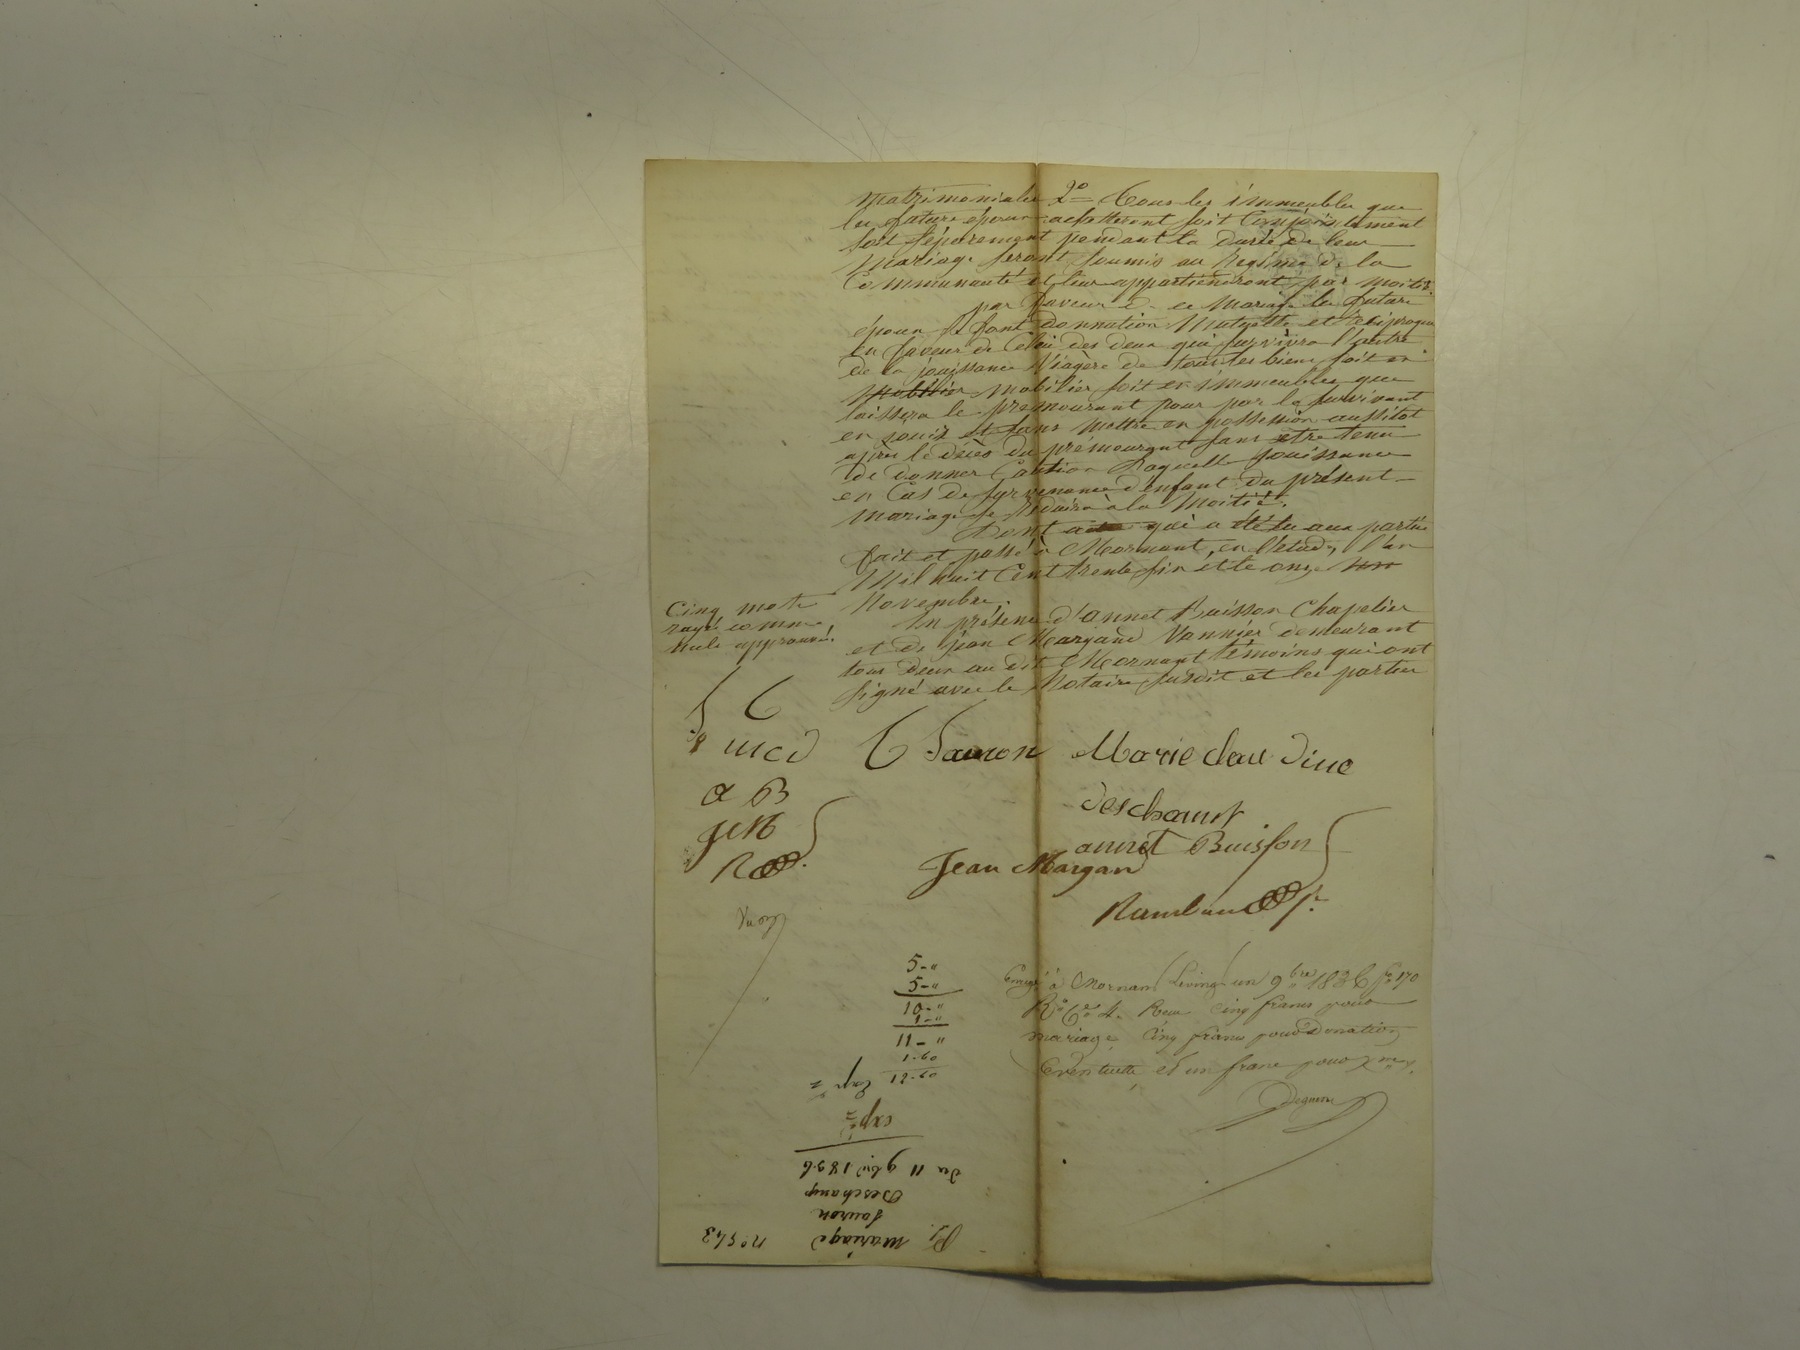 matrimoniales 2° Tous les immeubles que
les futurs époux achetteront soit Conjointement
soit séparement pendant la durée de leur
mariage seront soumis au Régime de la
Communauté et leur appartiendront par moitié.
par faveur d ce mariage les futurs
époux se font donnation Mutuelle et réciproque
en faveur de Celui des deux qui survivra l'autre
de la jouissance Viagère de tous les biens soit en
Mobilier mobilier soit en immeubles que
laissera le prémourant pour par le survivant
en jouir et sans mettre en possession aussitot
après le décès du prémourant sans etre tenu
de donner Caution Laquelle jouissance
en Cas de survenance d'enfant du présent
mariage se Réduira à la Moitié.
Dont acte qui a été lu aux parties
fait et passé à Mornant, en l'étude, l'an
Mil huit Cent trente six et le onze
Novembre.
En présence d'annet Buisson Chapelier
et de jean Margand Vannier demeurant
tous deux au dit Mornant témoins qui ont
signé avec le Notaire susdit et les parties
Cinq mots
rayé comme
nuls approuvé.
mcd
a B
J M
R
C Sauron Marie clau dine
deschamt
annet Buisson
Jean Margan
5-"
5-"
10-"
1-"
11-"
1-60
12-60
à Mornant Le vingt un 9bre 1836 f° 170
R° C 4. Reçu cinq francs pour
mariage, cinq francs pour Donation
Eventuelle et un franc pour
n° 543
mariage
Sauron
Deschamp
du 11 9bre 1836
expé
Exp